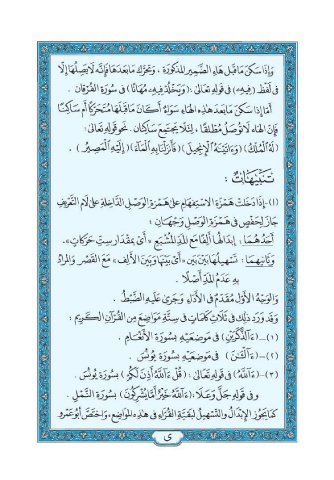 وَإِذَا سَكَنَ مَا قَبْلَ هَاءِ الضَّمِيرِ المَذْكُورَةِ ، وَتَحَرَّكَ مَا بَعْدَهَا فَإِنَّه لَا يَصِلُهَا إِلَّا
فِي لَفْظِ (فِيهِۦ) فِي قَوْلِهِ تَعَالَى : (وَيَخْلُدْ فِيهِۦ مُهَانًا) فِي سُورَةِ الفُرْقَانِ .
أَمَّا إِذَا سَكَنَ مَا بَعْدَ هَذِهِ الهَاءِ سَوَاءٌ أَكَانَ مَا قَبْلَهَا مُتَحَرِّكًا أَمْ سَاكِنًا
فَإِنَّ الهَاءَ لَا تُوصَلُ مُطْلَقًا ، لِئَلَّا يَجْتَمِعَ سَاكِنَانِ . نَحْوَ قَوْلِهِ تَعَالَى :
(لَهُ المُلْكُ) (وَءَاتَيْنَهُ الْإِنجِيلَ) (فَأَنزَلْنَا بِهِ الْمَاءَ) (إِلَيْهِ الْمَصِيرُ) .
تَنْبِيهَاتٌ :
(١)- إِذَا دَخَلَتْ هَمْزَةُ الِاسْتِفْهَامِ عَلَى هَمْزَةِ الوَصْلِ الدَّاخِلَةِ عَلَى لَامِ التَّعْرِيفِ
جَازَ لِحَفْصٍ فِي هَمْزَةِ الوَصْلِ وَجْهَانِ :
أَحَدُهُمَا : إِبْدَالُهَا أَلِفًا مَعَ المَدِّ المُشْبَعِ «أَيْ بِمِقْدَارِ سِتِّ حَرَكَاتٍ».
وَثَانِيهِمَا : تَسْهِيلُهَا بَيْنَ بَيْنَ «أَيْ بَيْنَهَا وَبَيْنَ الأَلِفِ» مَعَ القَصْرِ وَالمُرَادُ
بِهِ عَدَمُ المَدِّ أَصْلًا .
وَالوَجْهُ الأَوَّلُ مُقَدَّمٌ فِي الأَدَاءِ وَجَرَى عَلَيْهِ الضَّبْطُ .
وَقَدْ وَرَدَ ذَلِكَ فِي ثَلَاثِ كَلِمَاتٍ فِي سِتَّةِ مَوَاضِعَ مِنَ القُرْآنِ الكَرِيمِ :
(١)- (ءَآلذَّكَرَيْنِ) فِي مَوْضِعَيْهِ بِسُورَةِ الأَنْعَامِ .
(٢)- (ءَآلْـَٰنَ) فِي مَوْضِعَيْهِ بِسُورَةِ يُونُسَ .
(٣)- (ءَآللَّهُ) فِي قَوْلِهِ تَعَالَى : (قُلْ ءَآللَّهُ أَذِنَ لَكُمْ) بِسُورَةِ يُونُسَ .
وَفِي قَوْلِهِ جَلَّ وَعَلَا : (ءَآللَّهُ خَيْرٌ أَمَّا يُشْرِكُونَ) بِسُورَةِ النَّمْلِ .
كَمَا يَجُوزُ الإِبْدَالُ وَالتَّسْهِيلُ لِبَقِيَّةِ القُرَّاءِ فِي هَذِهِ المَوَاضِعِ ، وَاخْتَصَّ أَبُو عَمْرٍو
ى